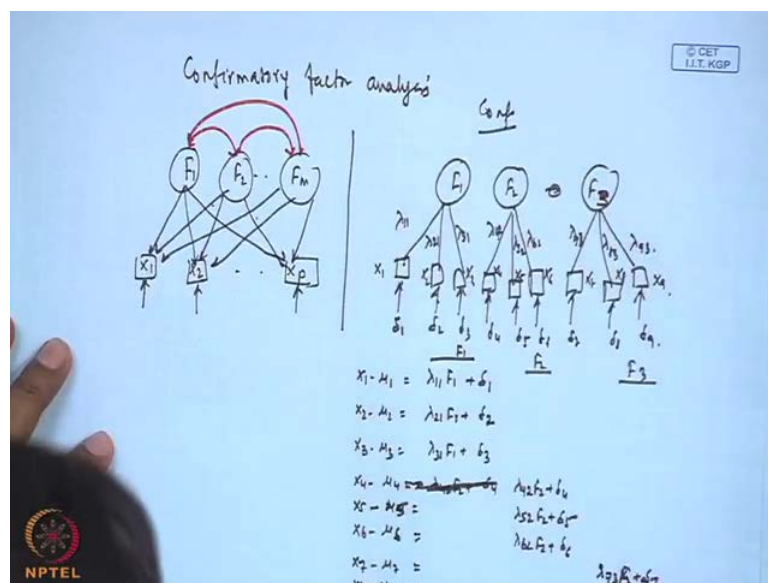 © CET
I.I.T. KGP
Confirmatory factor analysis
Conf
F1 F2 . . Fm
X1 X2 . . Xp
F1 F2 F3
λ11 λ21 λ31 λ42 λ52 λ62 λ73 λ83 λ93
X1 X2 X3 X4 X5 X6 X7 X8 X9
δ1 δ2 δ3 δ4 δ5 δ6 δ7 δ8 δ9
F1 F2 F3
X1 - μ1 = λ11 F1 + δ1
X2 - μ2 = λ21 F1 + δ2
X3 - μ3 = λ31 F1 + δ3
X4 - μ4 = λ42 F2 + δ4
X5 - μ5 = λ52 F2 + δ5
X6 - μ6 = λ62 F2 + δ6
X7 - μ7 =
NPTEL